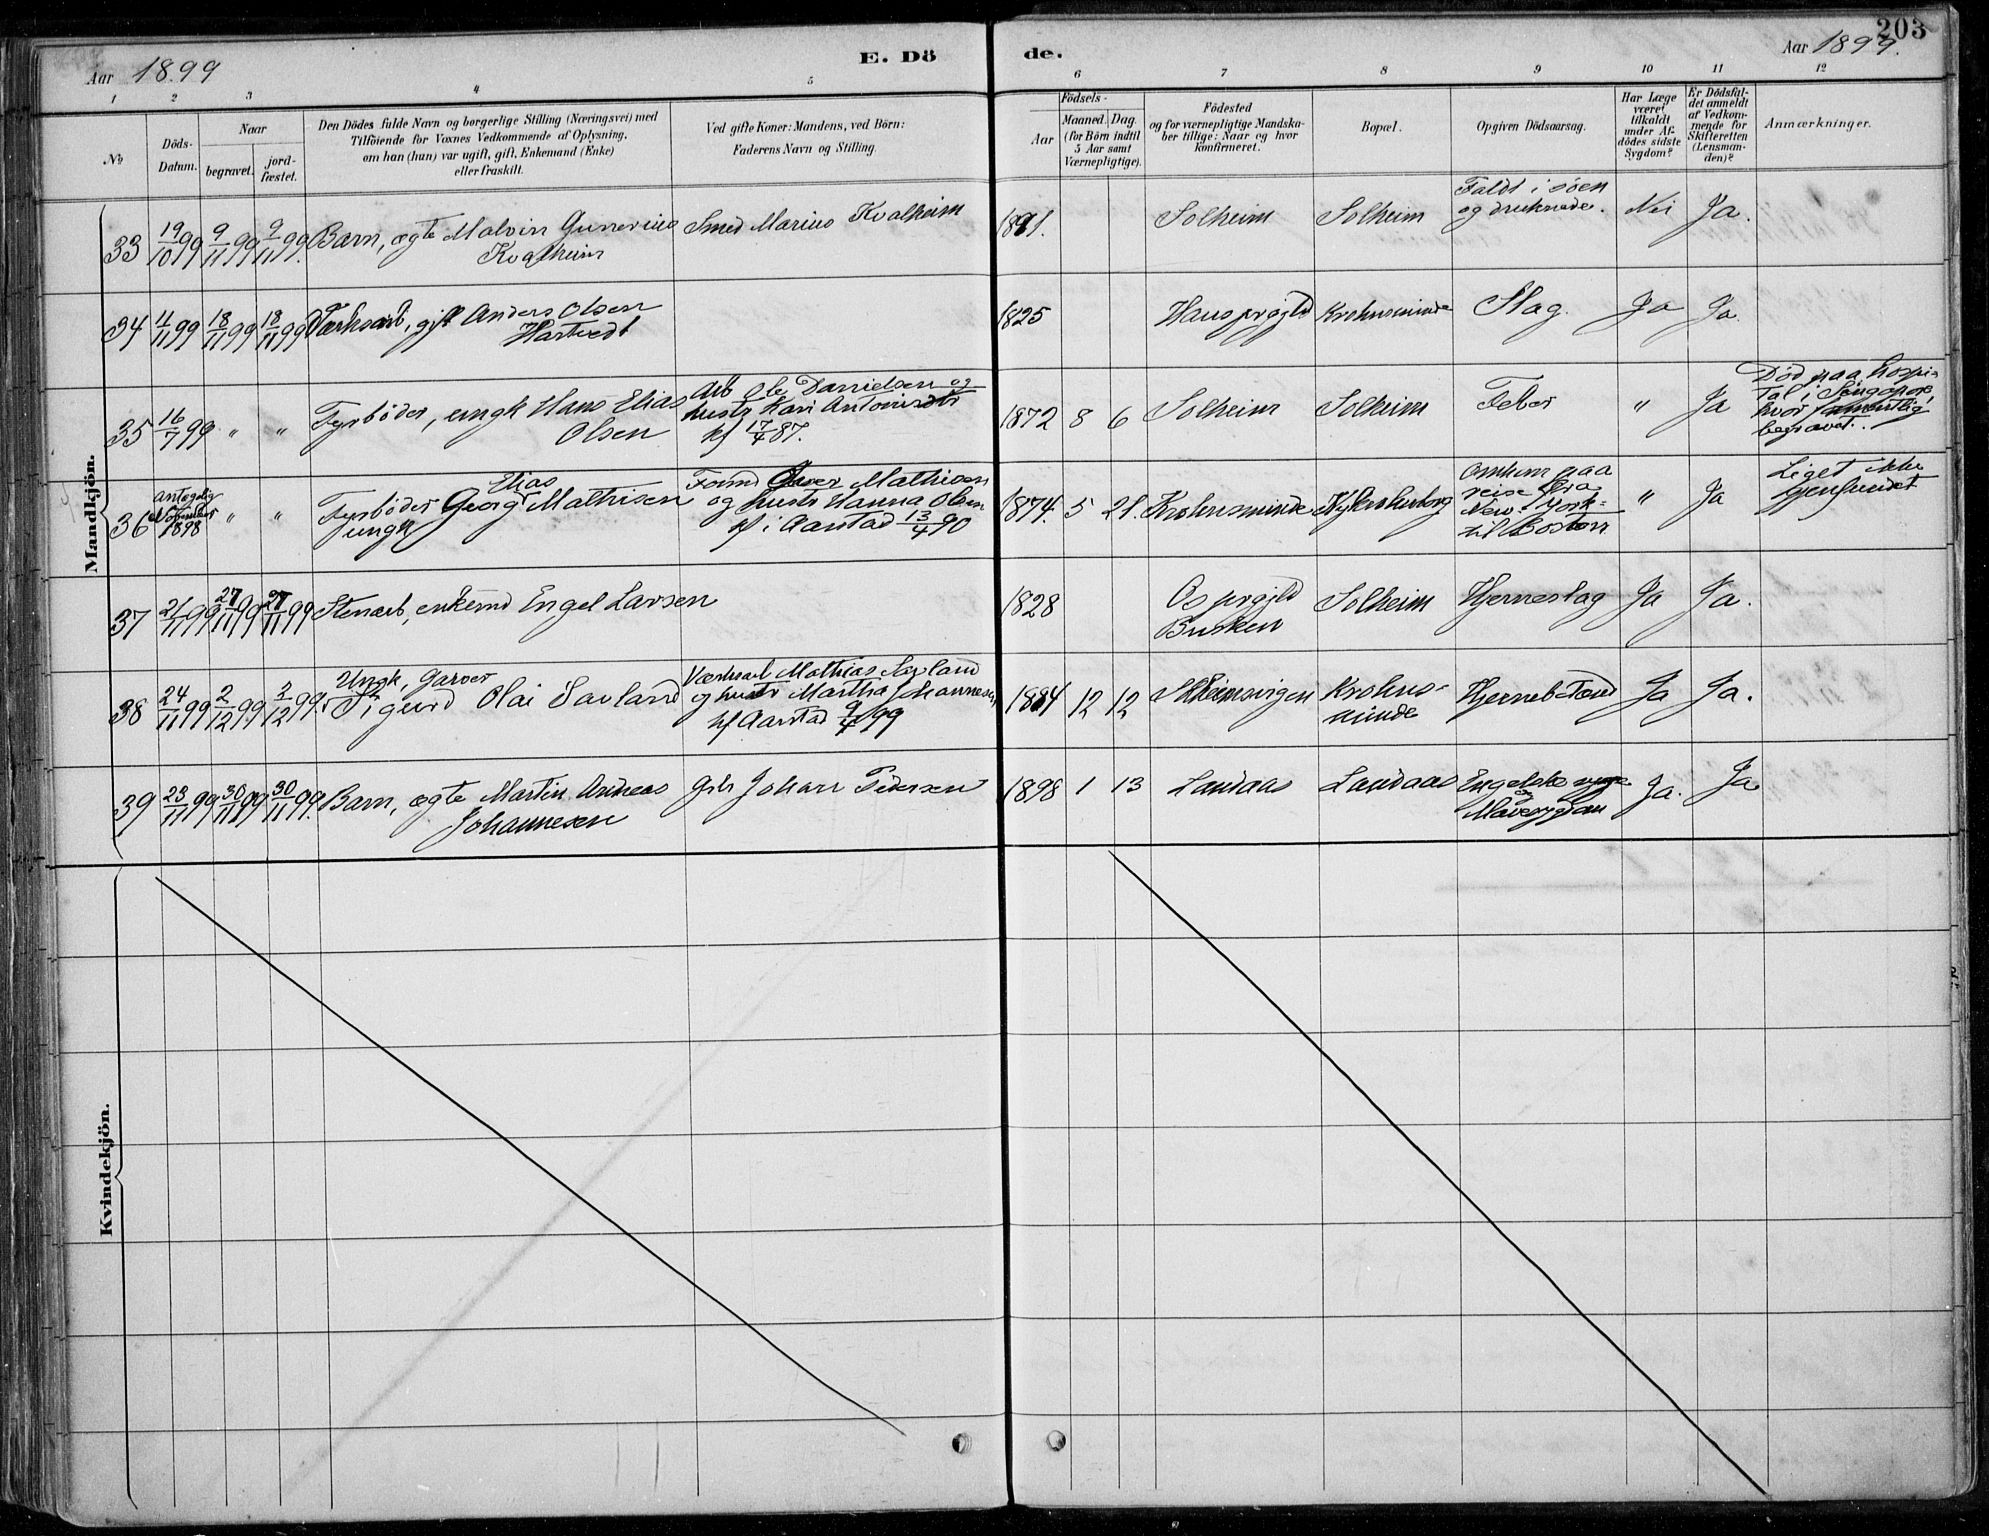 203
Aar 1899
E. Dö
de.
Aar 1899.
1 2 3 4 5 6 7 8 9 10 11 12
№
Döds-
Datum.
Naar
begravet.
jord-
fæstet.
Den Dödes fulde Navn og borgerlige Stilling (Næringsvei) med
Tilföiende for Voxnes Vedkommende af Oplysning,
om han (hun) var ugift, gift, Enkemand (Enke)
eller fraskilt.
Ved gifte Koner: Mandens, ved Börn:
Faderens Navn og Stilling.
Födsels-
Aar
Maaned. Dag.
(for Börn indtil
5 Aar samt
Værnepligtige).
Födested
og for værnepligtige Mandska-
ber tillige: Naar og hvor
konfirmeret.
Bopæl.
Opgiven Dödsaarsag.
Har Læge
været
tilkaldt
under Af-
dödes sidste
Sygdom?
Er Dödsfal-
det anmeldt
af Vedkom-
mende for
Skifteretten
(Lensman-
den)?
Anmærkninger.
Mandkjön.
33 19/10 99 9/11 99 9/11 99. Barn, ægte Malvin Gunerius
Kvalheim
Smed Marius Kvalheim
1891. Solheim Solheim
Faldt i söen
og druknede.
Nei Ja.
34 11/11 99 18/11 99 18/11 99 Værksarb, gift Anders Olsen
Hartvedt
1825 Haus prgjld Krohnsminde Slag. Ja Ja.
35 16/7 99 " " Fyrböder, ungk Hans Elias
Olsen
Arb Ole Danielsen og
hustr Kari Antonisdtr
kf 17/4 87.
1872 8 6 Solheim Solheim Feber " Ja
Död paa hospi-
tal i Singapore,
hvor
begravet.
36 antagelig
November
1898
" "
Elias
Fyrböder Georg Mathisen
ungk
Form Mathisen
og hustr Hanna Olsen
kf i Aarstad 13/4 90
1874. 5 21. Krohnsminde Ny Krohnborg
Omkom paa
reise fra
New-York-
til Boston
" Ja
Liget ikke
gjenfundet
37 21/11 99 27/11 99 27/11 99 Stenarb, enkemd Engel Larsen
1828 Os prgjld
Solheim Hjerneslag Ja Ja.
38 24/11 99 2/12 99 2/12 99.
Ungk, Garver
Sigurd Olai Sævland
Værksarb Mathias Sævland
og hustr Martha Johannesen
kf Aarstad 9/4 99
1884 12 12 Solheimsvigen Krohns-
minde
Ja Ja.
39 23/11 99 30/11 99 30/11 99. Barn, ægte Martin Andreas
Johannesen
Johan Pedersen
1898 1 13 Landaas Landaas Engelske syge
og
Mavesygdom
Ja. Ja
Kvindekjön.